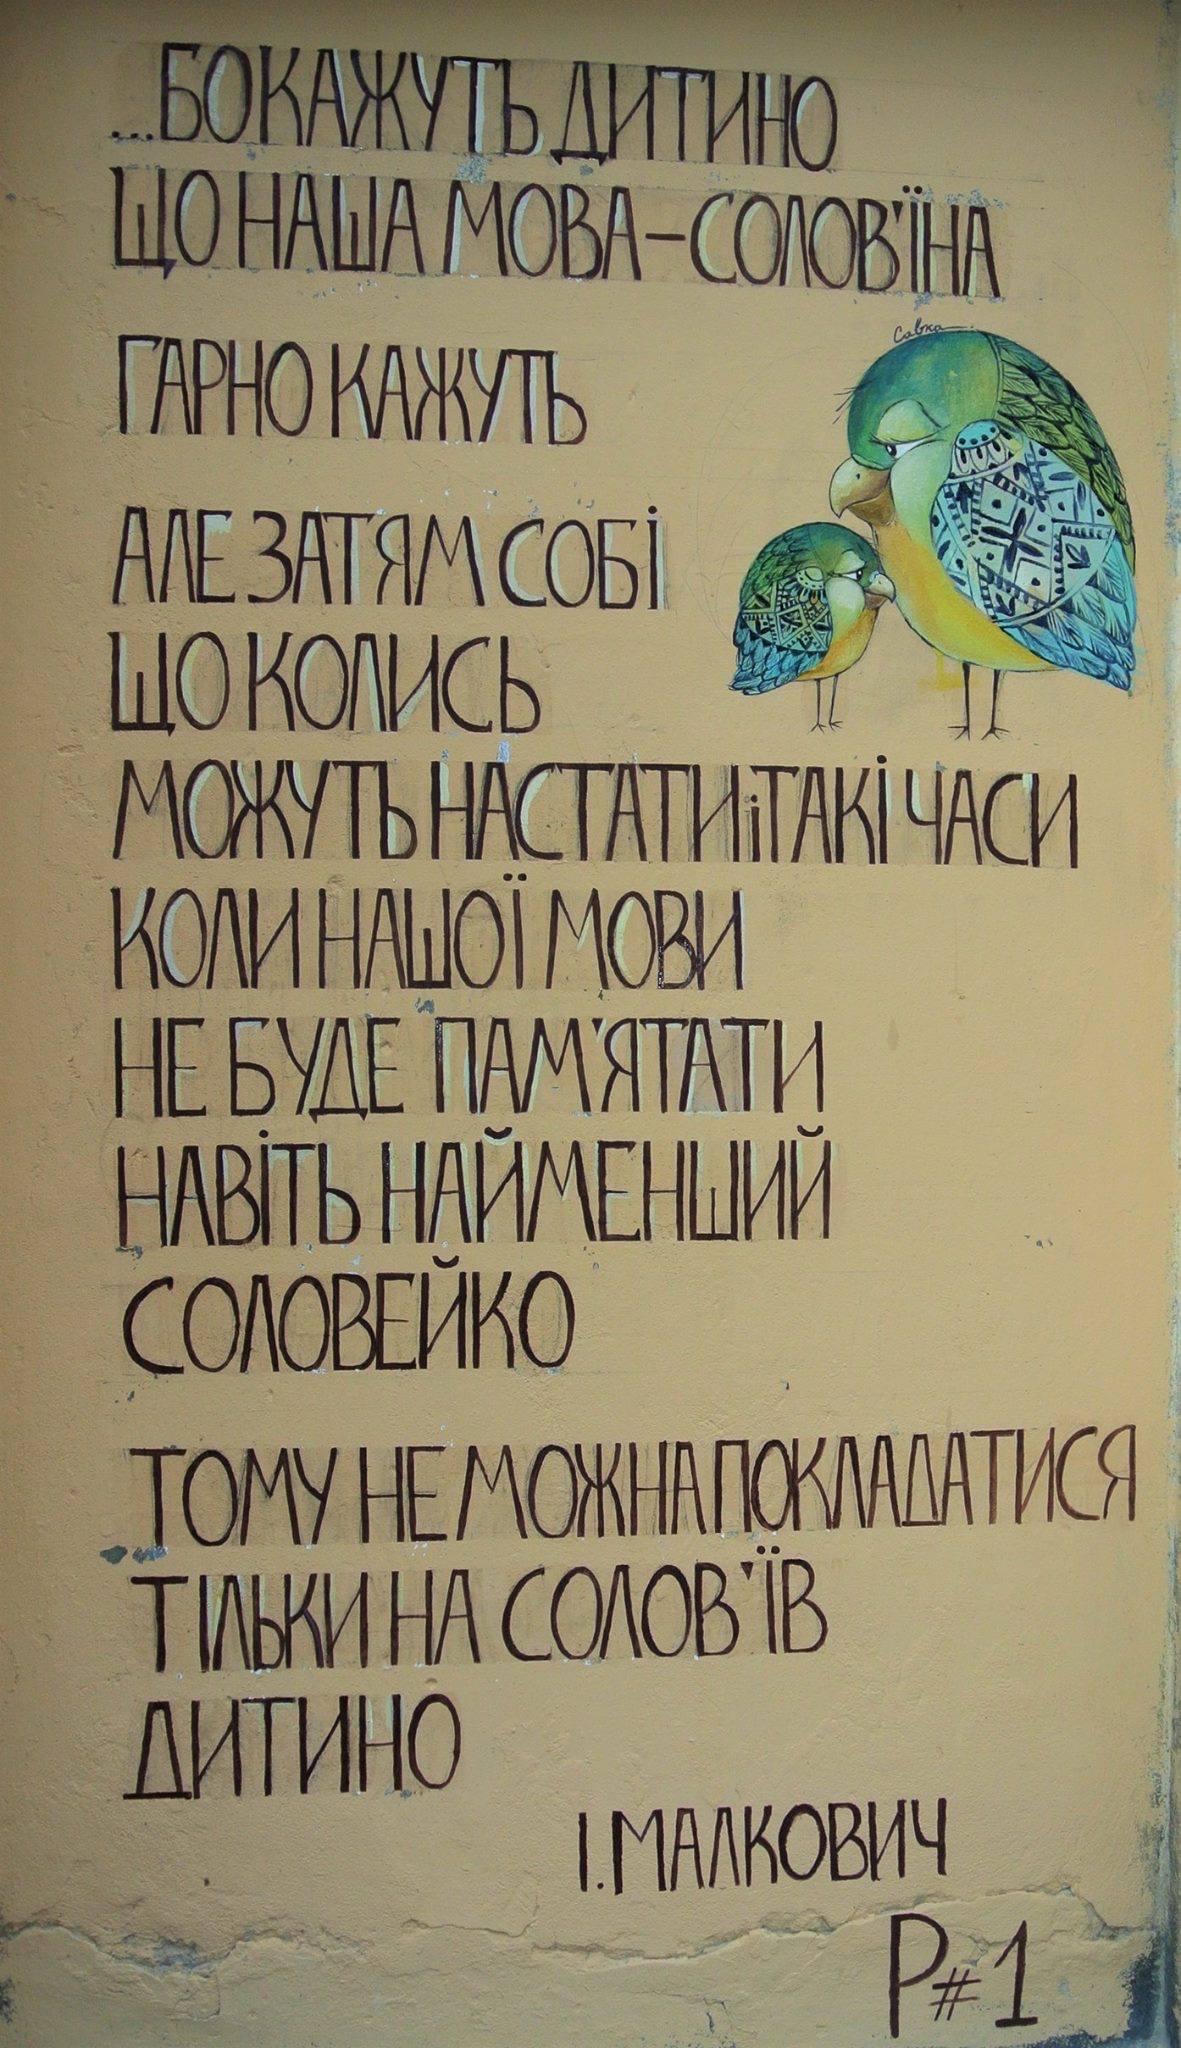 ...БО КАЖУТЬ ДИТИНО
ЩО НАША МОВА – СОЛОВ'ЇНА
Савка
ГАРНО КАЖУТЬ
АЛЕ ЗАТЯМ СОБІ
ЩО КОЛИСЬ
МОЖУТЬ НАСТАТИ і ТАКІ ЧАСИ
КОЛИ НАШОЇ МОВИ
НЕ БУДЕ ПАМ'ЯТАТИ
НАВІТЬ НАЙМЕНШИЙ
СОЛОВЕЙКО
ТОМУ НЕ МОЖНА ПОКЛАДАТИСЯ
ТІЛЬКИ НА СОЛОВ'ЇВ
ДИТИНО
І. МАЛКОВИЧ
Р#1